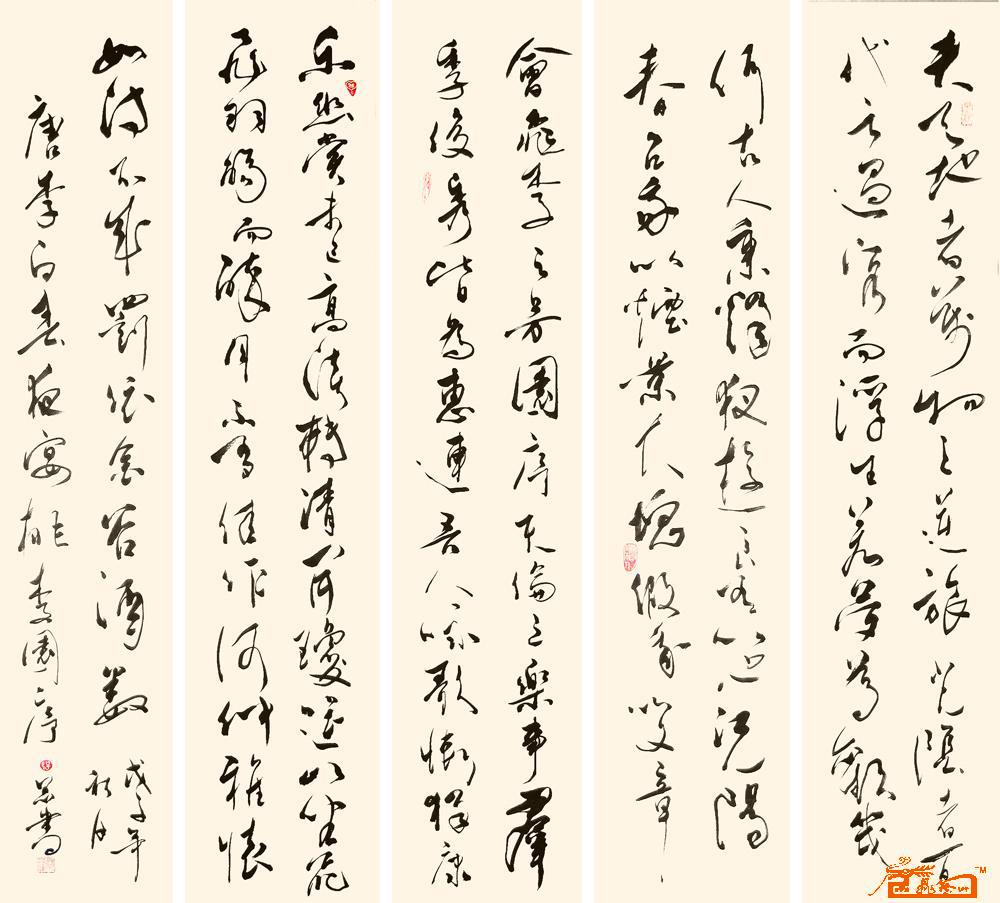 夫天地者万物之逆旅光陰者百
代之過客而浮生若夢為歡幾
何古人秉燭夜遊良有以也况陽
春召我以煙景大塊假我以文章
會桃李之芳園序天倫之樂事群
季俊秀皆為惠連吾人咏歌慚獨康
樂幽賞未已高談轉清開瓊筵以坐花
飛羽觴而醉月不有佳作何伸雅懷
如詩不成罰依金谷酒數
戊子年
秋月
唐李白春夜宴桃李園序